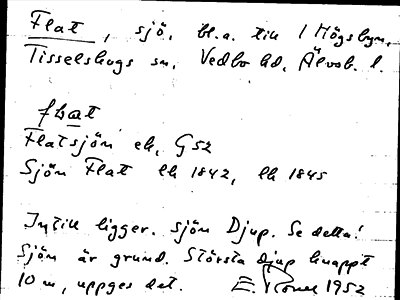 Flat, sjö, bl.a. till 1 Högsbyn,
Tisselskogs sn, Vedbo hd, Älvsb. l.
flat
Flatsjön ek, G52
Sjön Flat lk 1842, lk 1845
Intill ligger sjön Djup. Se detta!
Sjön är grund. Största djup knappt
10 m, uppges det. E 1952